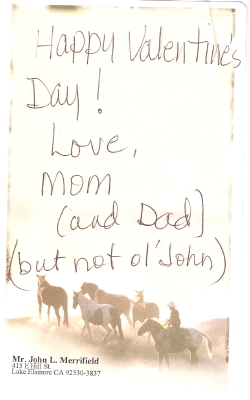 Happy Valentine's
Day!
Love,
Mom
(and Dad)
(but not ol' John)
Mr. John L. Merrifield
415 E Hill St.
Lake Elsinore CA 92530-3837